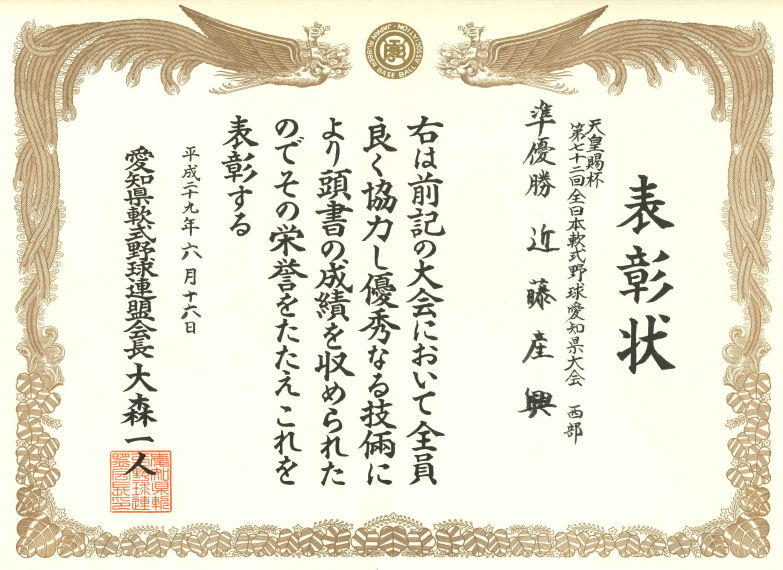 JAPAN RUBBER BASE BALL ASSOCIATION
表彰状
天皇賜杯
第七十二回全日本軟式野球愛知県大会 西部
準優勝 近藤産興
右は前記の大会において全員
良く協力し優秀なる技倆に
より頭書の成績を収められた
のでその栄誉をたたえこれを
表彰する
平成二十九年六月十六日
愛知県軟式野球連盟会長 大森一人